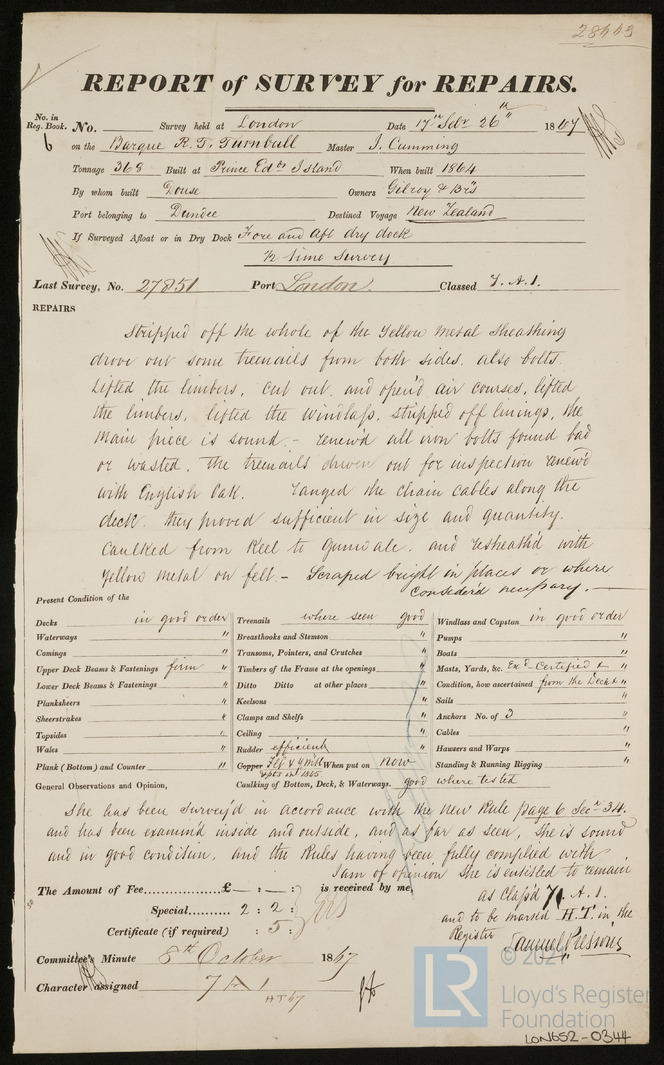 28443
REPORT of SURVEY for REPAIRS.
No. in Reg. Book. 6 No. Survey held at London Date 17th Sepr 26th 1867
on the Barque R. T. Turnbull Master J. Cumming
Tonnage 368 Built at Prince Edds Island When built 1864
By whom built Douse Owners Gilroy & Brs
Port belonging to Dundee Destined Voyage New Zealand
If Surveyed Afloat or in Dry Dock Fore and Aft dry dock
½ time Survey
Last Survey, No. 27851 Port London. Classed 7. A. 1.
REPAIRS
Stripped off the whole of the Yellow Metal Sheathing
drove out some treenails from both sides. also bolts.
Lifted the limbers, cut out and open'd air courses, lifted
the limbers, lifted the Windlass, stripped off linings, the
Main piece is sound. - renew'd all iron bolts found bad
or wasted. The treenails driven out for inspection renew'd
with English Oak. Ranged the chain cables along the
deck. they proved sufficient in size and quantity.
Caulked from Keel to Gunwale. and resheath'd with
Yellow Metal on felt. - Scraped bright in places or where
consider'd necessary. -
Present Condition of the
Decks in good order Treenails where seen good Windlass and Capstan in good order
Waterways " Breasthooks and Stemson " Pumps "
Comings " Transoms, Pointers, and Crutches " Boats "
Upper Deck Beams & Fastenings firm " Timbers of the Frame at the openings " Masts, Yards, &c. Exd Certified & "
Lower Deck Beams & Fastenings " Ditto Ditto at other places " Condition, how ascertained from the Deck & "
Planksheers " Keelsons " Sails "
Sheerstrakes " Clamps and Shelfs " Anchors No. of 3 "
Topsides " Ceiling " Cables "
Wales " Rudder efficient " Hawsers and Warps "
Plank (Bottom) and Counter " Copper Felt & Y Metl When put on Now Standing & Running Rigging "
General Observations and Opinion, Caulking of Bottom, Deck, & Waterways. good where tested
She has been Survey'd in accordance with the New Rule page 6 Secn 34.
and has been examin'd inside and outside, and as far as seen, she is sound
and in good condition, and the Rules having been fully complied with
I am of opinion she is entitled to remain
The Amount of Fee £ - : - : is received by me, as Class'd 7. A. 1.
Special 2 : 2 : and to be marked H.T. in the
Certificate (if required) : 5 : Register
Committee's Minute 8th October 1867
Character assigned 7 A 1
HT 67
© 2021
LR
Lloyd's Register
Foundation
LON652-0344